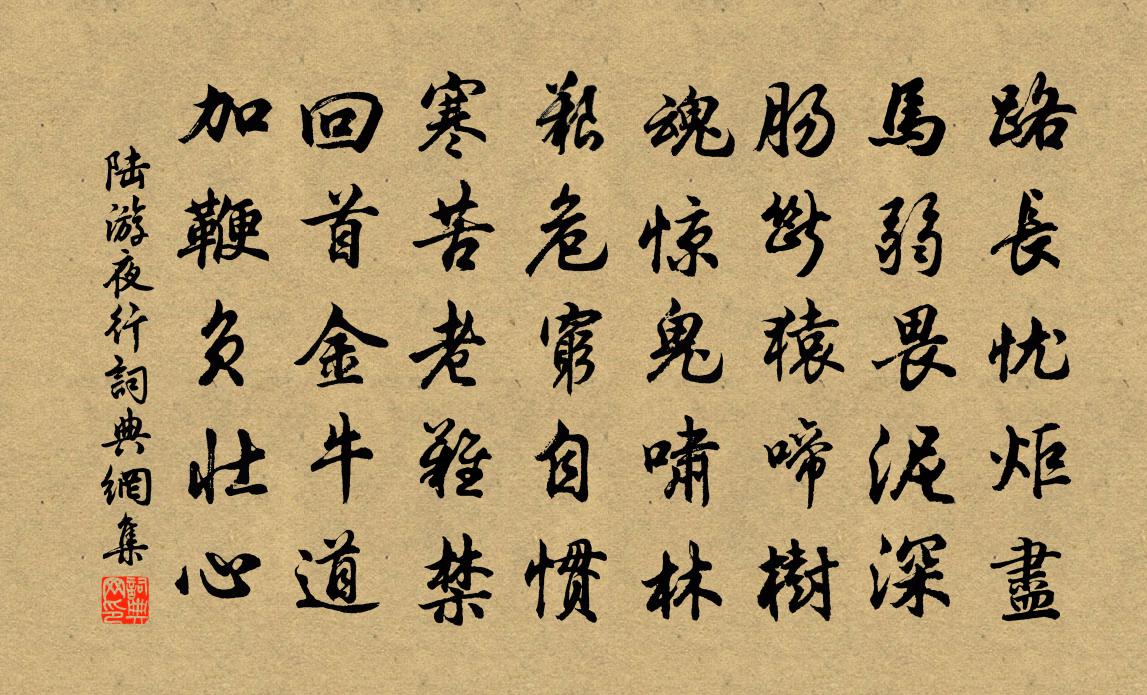 路長忧炬盡
馬弱畏泥深
肠斷猿啼樹
魂惊鬼嘯林
艱危窮自慣
寒苦老難禁
回首金牛道
加鞭負壮心
陆游夜行詞典網集
詞典网印